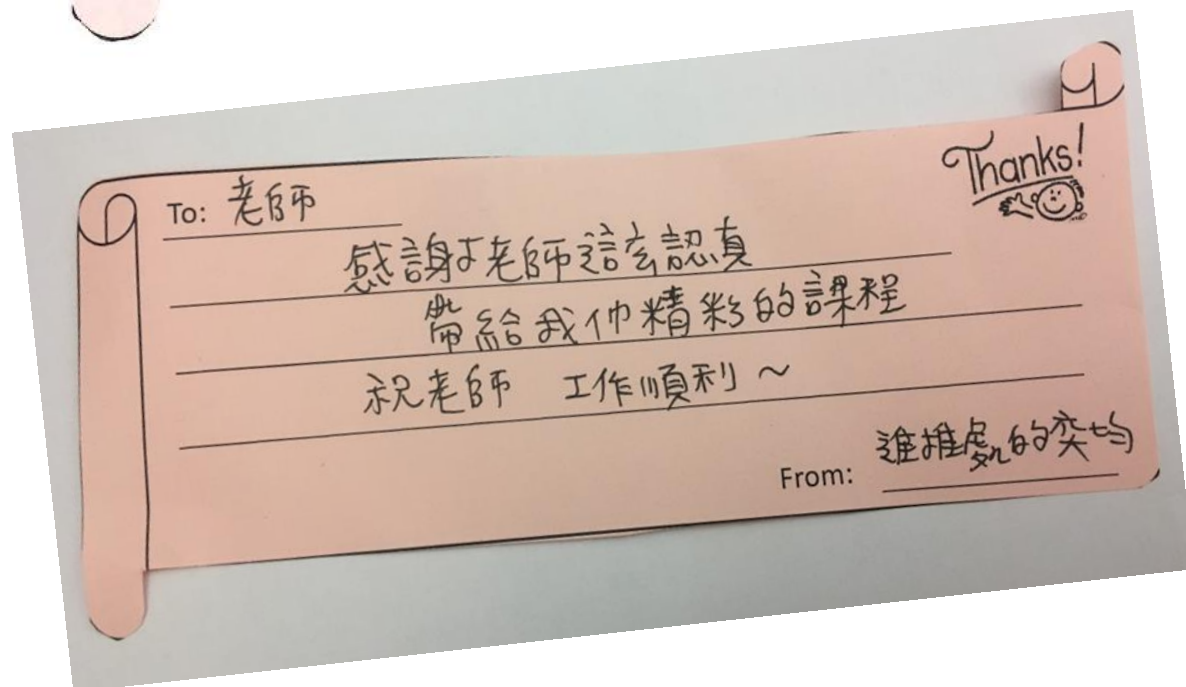 Thanks!
To: 老師
感謝老師這麼認真
帶給我们精彩的課程
祝老師 工作順利~
From: 進推處的奕均